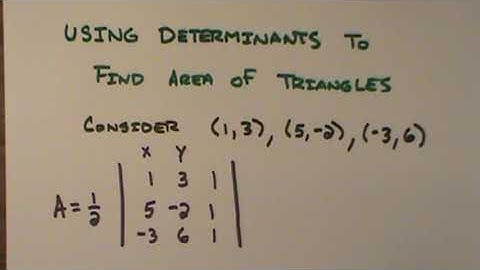 USING DETERMINANTS TO
FIND AREA OF TRIANGLES
CONSIDER (1,3), (5,-2), (-3,6)
X Y
1 3 1
A = 1/2 | 5 -2 1 |
-3 6 1